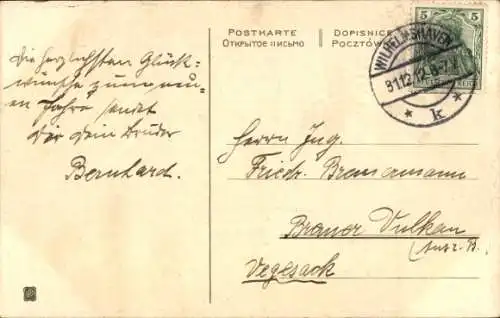 POSTKARTE
ОТКРЫТОЕ ПИСЬМО
DOPISNICE
POCZTÓW
5 5
WILHELMSHAVEN
31.12.12.
* k *
Die herzlichsten Glück-
wünsche zum neu-
en Jahre sendet
Dir Dein Bruder
Bernhard.
Herrn Ing.
Friedr.
Bremer Vulkan
Vegesack